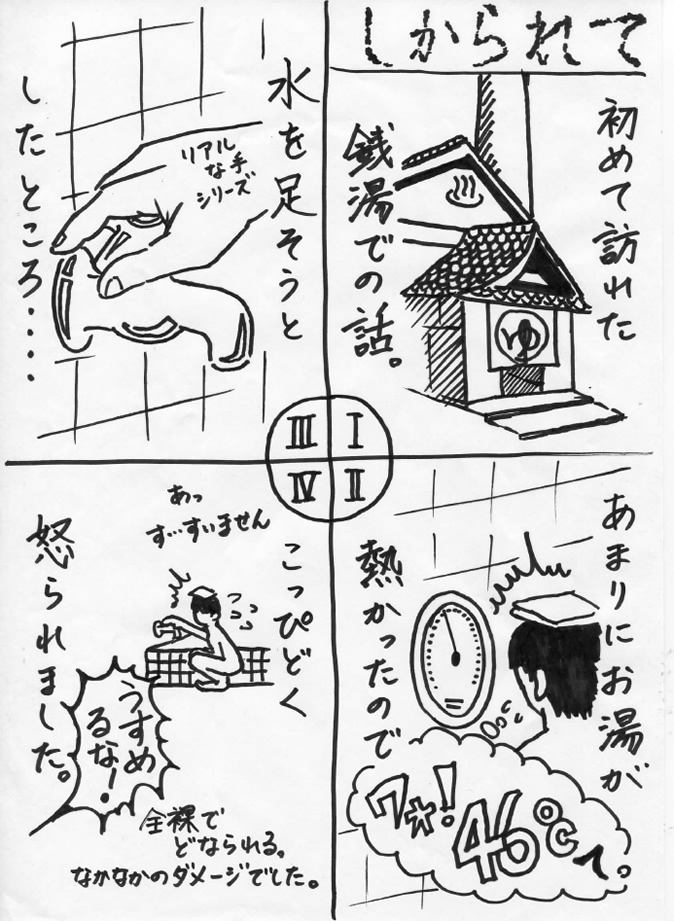 しかられて
初めて訪れた
銭湯での話。
ゆ
I
あまりにお湯が
熱かったので
46℃て。
II
水を足そうと
したところ・・・・
リアル
な手
シリーズ
III
こっぴどく
怒られました。
あっ
す…すいません
うすめ
るな!
全裸で
どなられる。
なかなかのダメージでした。
IV